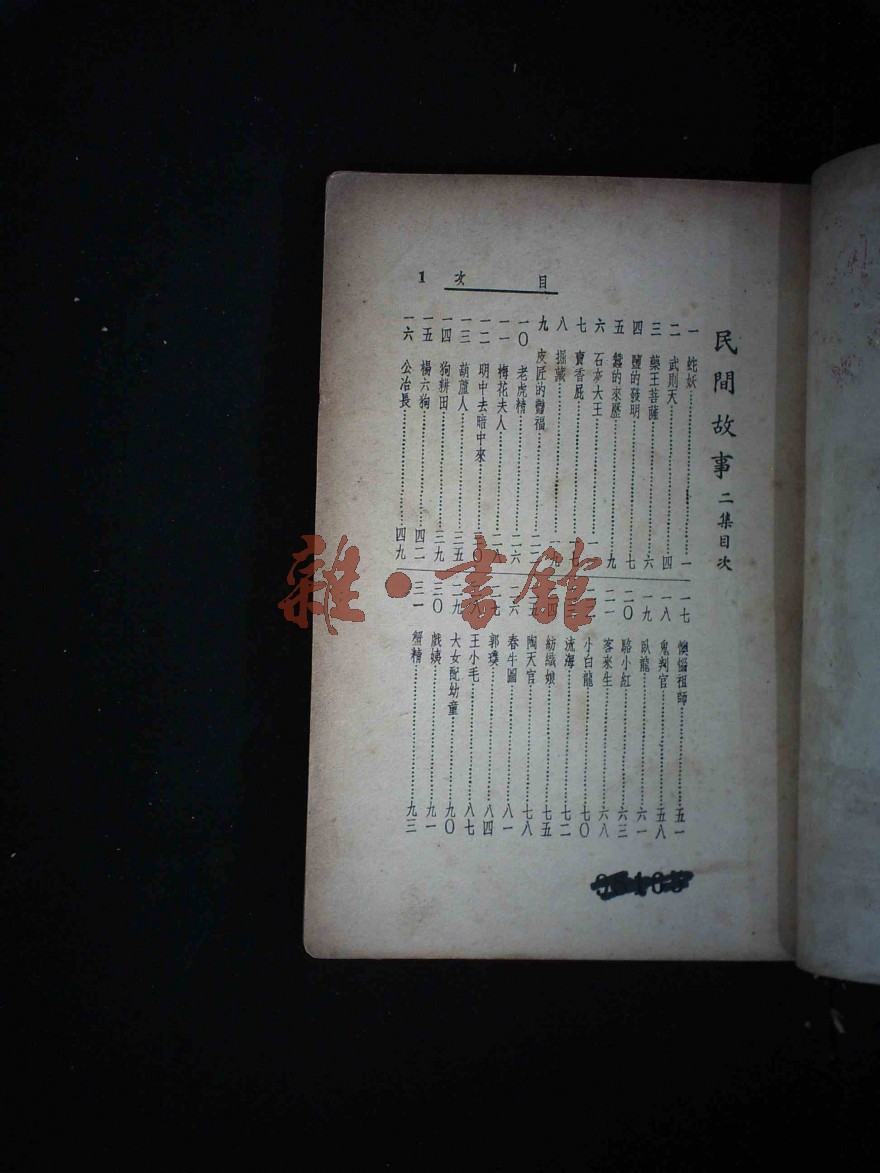 目次 1
民間故事 二集目次
一 蛇妖 一
二 武則天 四
三 藥王菩薩 六
四 鹽的發明 七
五 蠶的來歷 九
六 石 大王 一
七 賣香屁
八 掘藏
九 皮匠的 福
一〇 老虎精 二六
一一 梅花夫人 二八
一二 明中去暗中來 三〇
一三 葫蘆人 三五
一四 狗耕田 三九
一五 楊六狗 四二
一六 公冶長 四九
一七 懶惰祖師 五一
一八 鬼判官 五八
一九 臥龍 六一
二〇 駱小紅 六三
二一 客來生 六八
小白龍 七〇
沈海 七二
紡織娘 七五
陶天官 七八
春牛圖 八一
郭璞 八四
王小毛 八七
二九 大女配幼童 九〇
三〇 戲姨 九一
三一 蟹精 九三
雜·書館